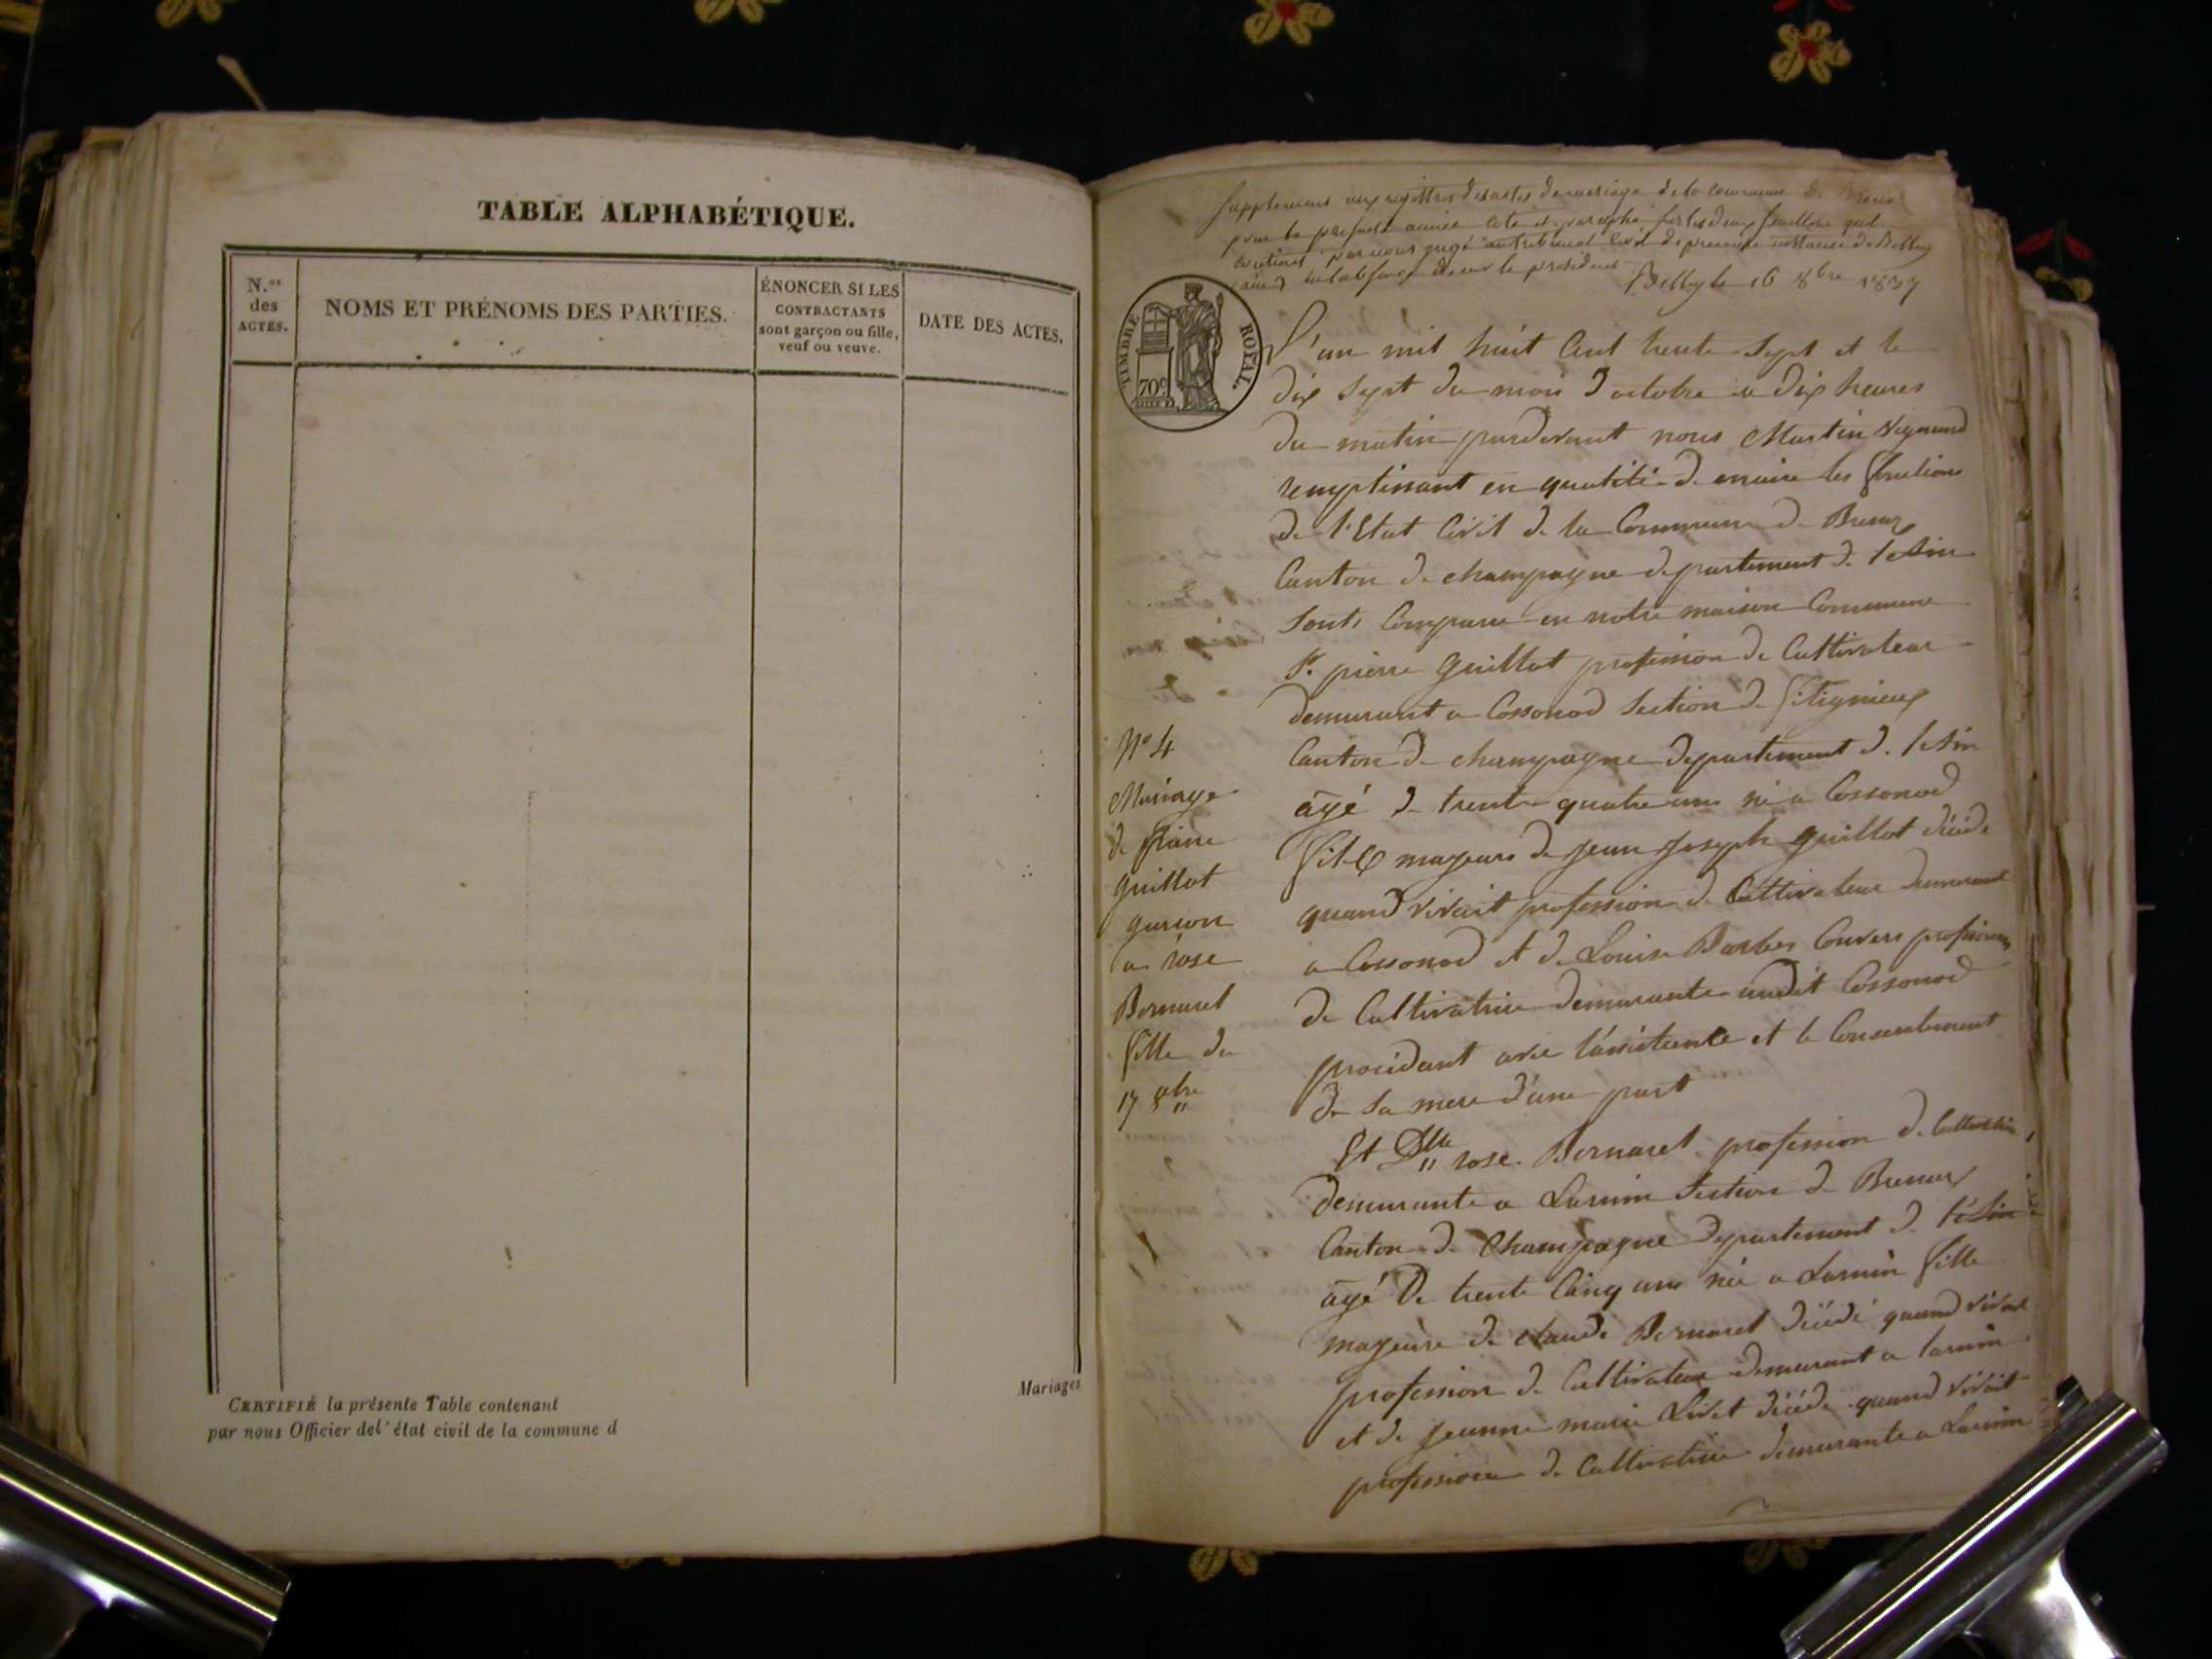 TABLE ALPHABÉTIQUE.
N.os
des
ACTES.
NOMS ET PRÉNOMS DES PARTIES.
ÉNONCER SI LES
CONTRACTANTS
sont garçon ou fille,
veuf ou veuve.
DATE DES ACTES.
Mariages
CERTIFIÉ la présente Table contenant
par nous Officier del'état civil de la commune d
Supplement aux registres des actes de mariage de la commune de
pour la presente année coté et paraphé sur les deux feuillets quil
contient par nous juge au tribunal civil de premiere instance de Belley
le président
Belley le 16 8bre 1837
TIMBRE ROYAL.
70c
L'an mil huit Cent trente Sept et le
dix Sept du mois d octobre a dix heures
du matin pardevant nous Martin
remplissant en qualité de maire les fonctions
de l'Etat Civil de la Commune de Brenaz
Canton de champagne departement de l'ain
Sont Comparu en notre maison Commune
Sr. pierre guillot profession de Cultivateur
demeurant a Cossonod Section de
Canton de champagne departement de l'ain
agé de trente quatre ans né a Cossonod
fils majeur de jean joseph guillot décédé
quand vivait profession de Cultivateur demeurant
a Cossonod et de Louise Convers profession
de Cultivatrice demeurante audit Cossonod
procédant avec l'assistence et le Consentement
de Sa mere d'une part
Et Dlle rose Bornarel profession de Cultivatrice
demeurante a Lavnin Section de Brenaz
Canton de Champagne Departement de l'ain
agé De trente Cinq ans née a Lavnin fille
majeure de claude Bornarel décédé quand vivait
profession de Cultivateur demeurant a
et de jeanne marie décédé quand vivait
profession de Cultivatrice demeurante a
No 4
Mariage
de pierre
guillot
garcon
a rose
Bornarel
fille du
17 8bre